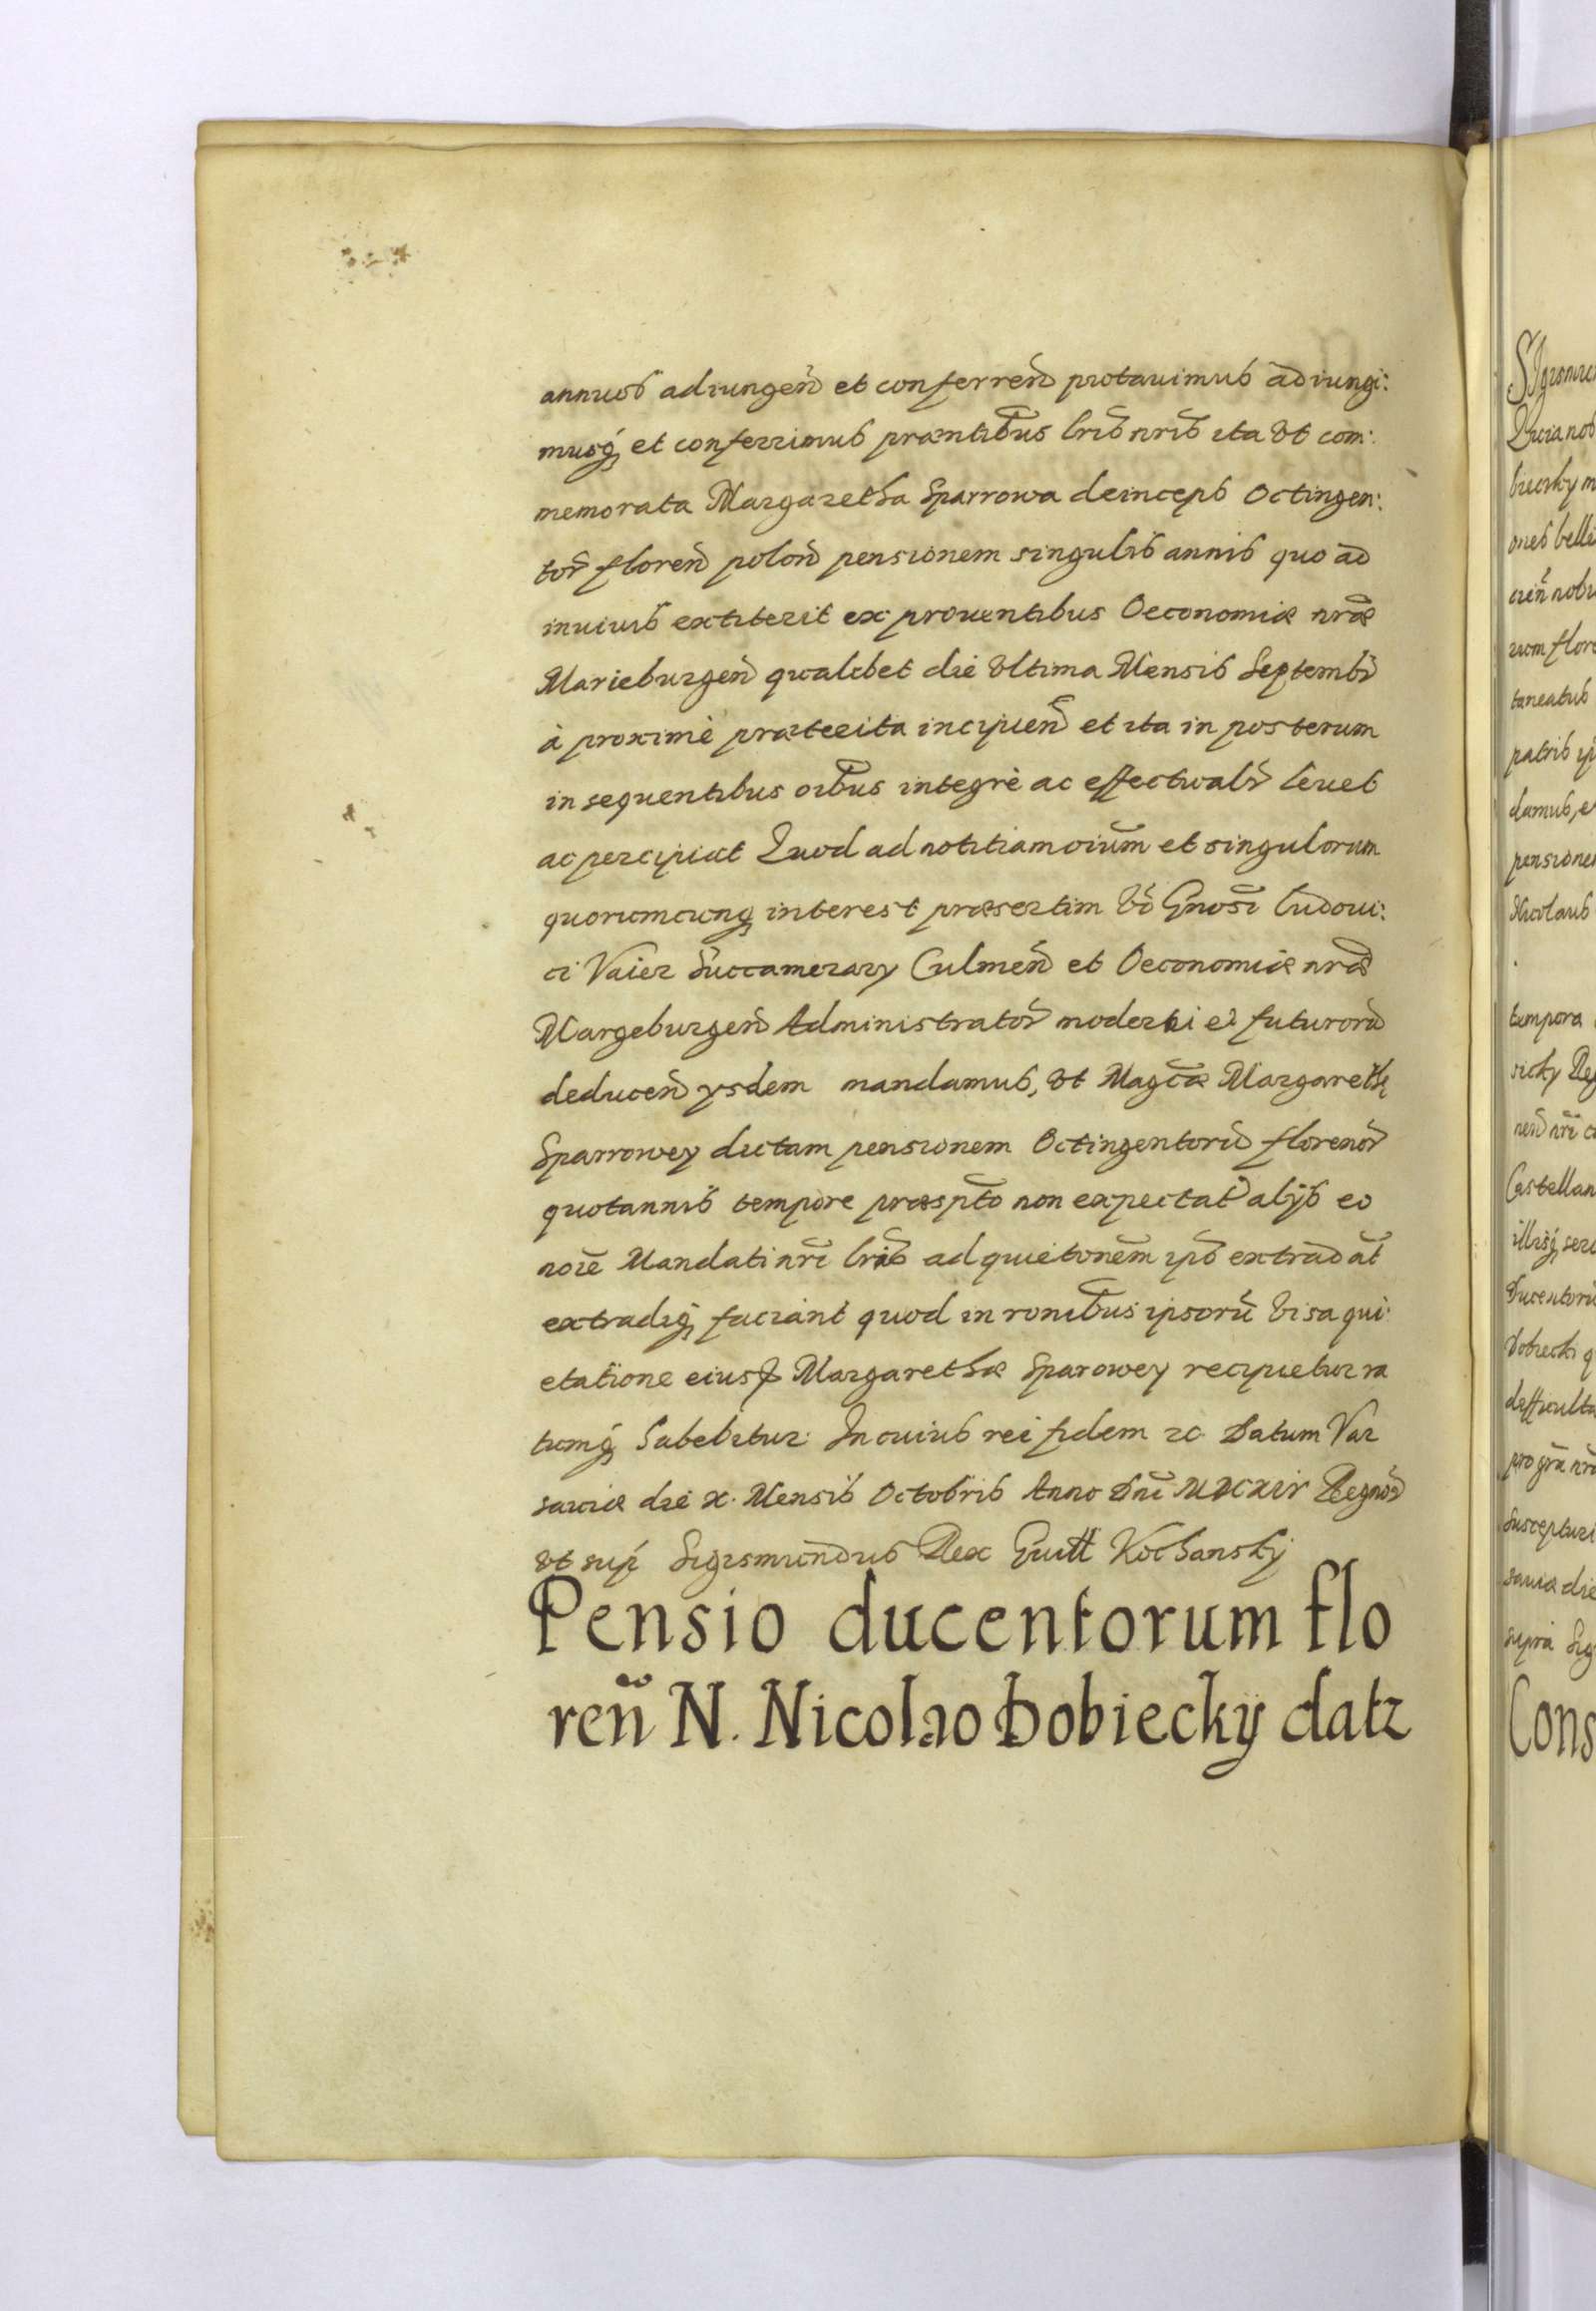 annuos adiungen̄ et conferren̄ putauimus adiungi:
musq́ꝫ et conferrimus præntib̄us lrīs nrīs ita vt com:
memorata Margaretha Sparrowa deinceps Octingen:
tor̄ floren̄ polon̄ pensionem singulis annis quo ad
inuiuis extiterit ex prouentibus Oeconomiæ nrǣ
Marieburgen̄ qualibet die vltima Mensis Septembr̄
à proximè præterita incipien̄ et ita in posterum
insequentibus oīb̄us integrè ac effectualr̄ leuet
ac percipiat Quod ad notitiam oium̄ et singulorum
quorumcunqꝫ interest præsertim vō Gnosī Ludoui:
ci Vaier Succamerarÿ Culmen̄ et Oeconomiæ nrǣ
Margeburgen̄ Administrator̄ moderni et futurorū
deducen̄ ysdem mandamus, vt Magcǣ Margarethę
Sparrowey dictam pensionem Octingentorū florenor̄
quotannis tempore præsptō non expectat̄ alÿs eo
noīe Mandati nrī lrīs ad quietonēm ip̄s extradāt
extradiqꝫ faciant quod in ronib̄us ipsorū visa qui:
etatione eiusꝑ Margarethæ Sparowey recipietur ra
tumqꝫ habebitur In cuius rei fidem ꝛc Datum Var
sauiæ die x. Mensis Octobris Anno Dnī MDCXIV Regnor̄
vt sup̄ Sigismundus Rex Guill Kochansky
Pensio ducentorum flo
ren̄ N. Nicolao Dobieckÿ datꝛ